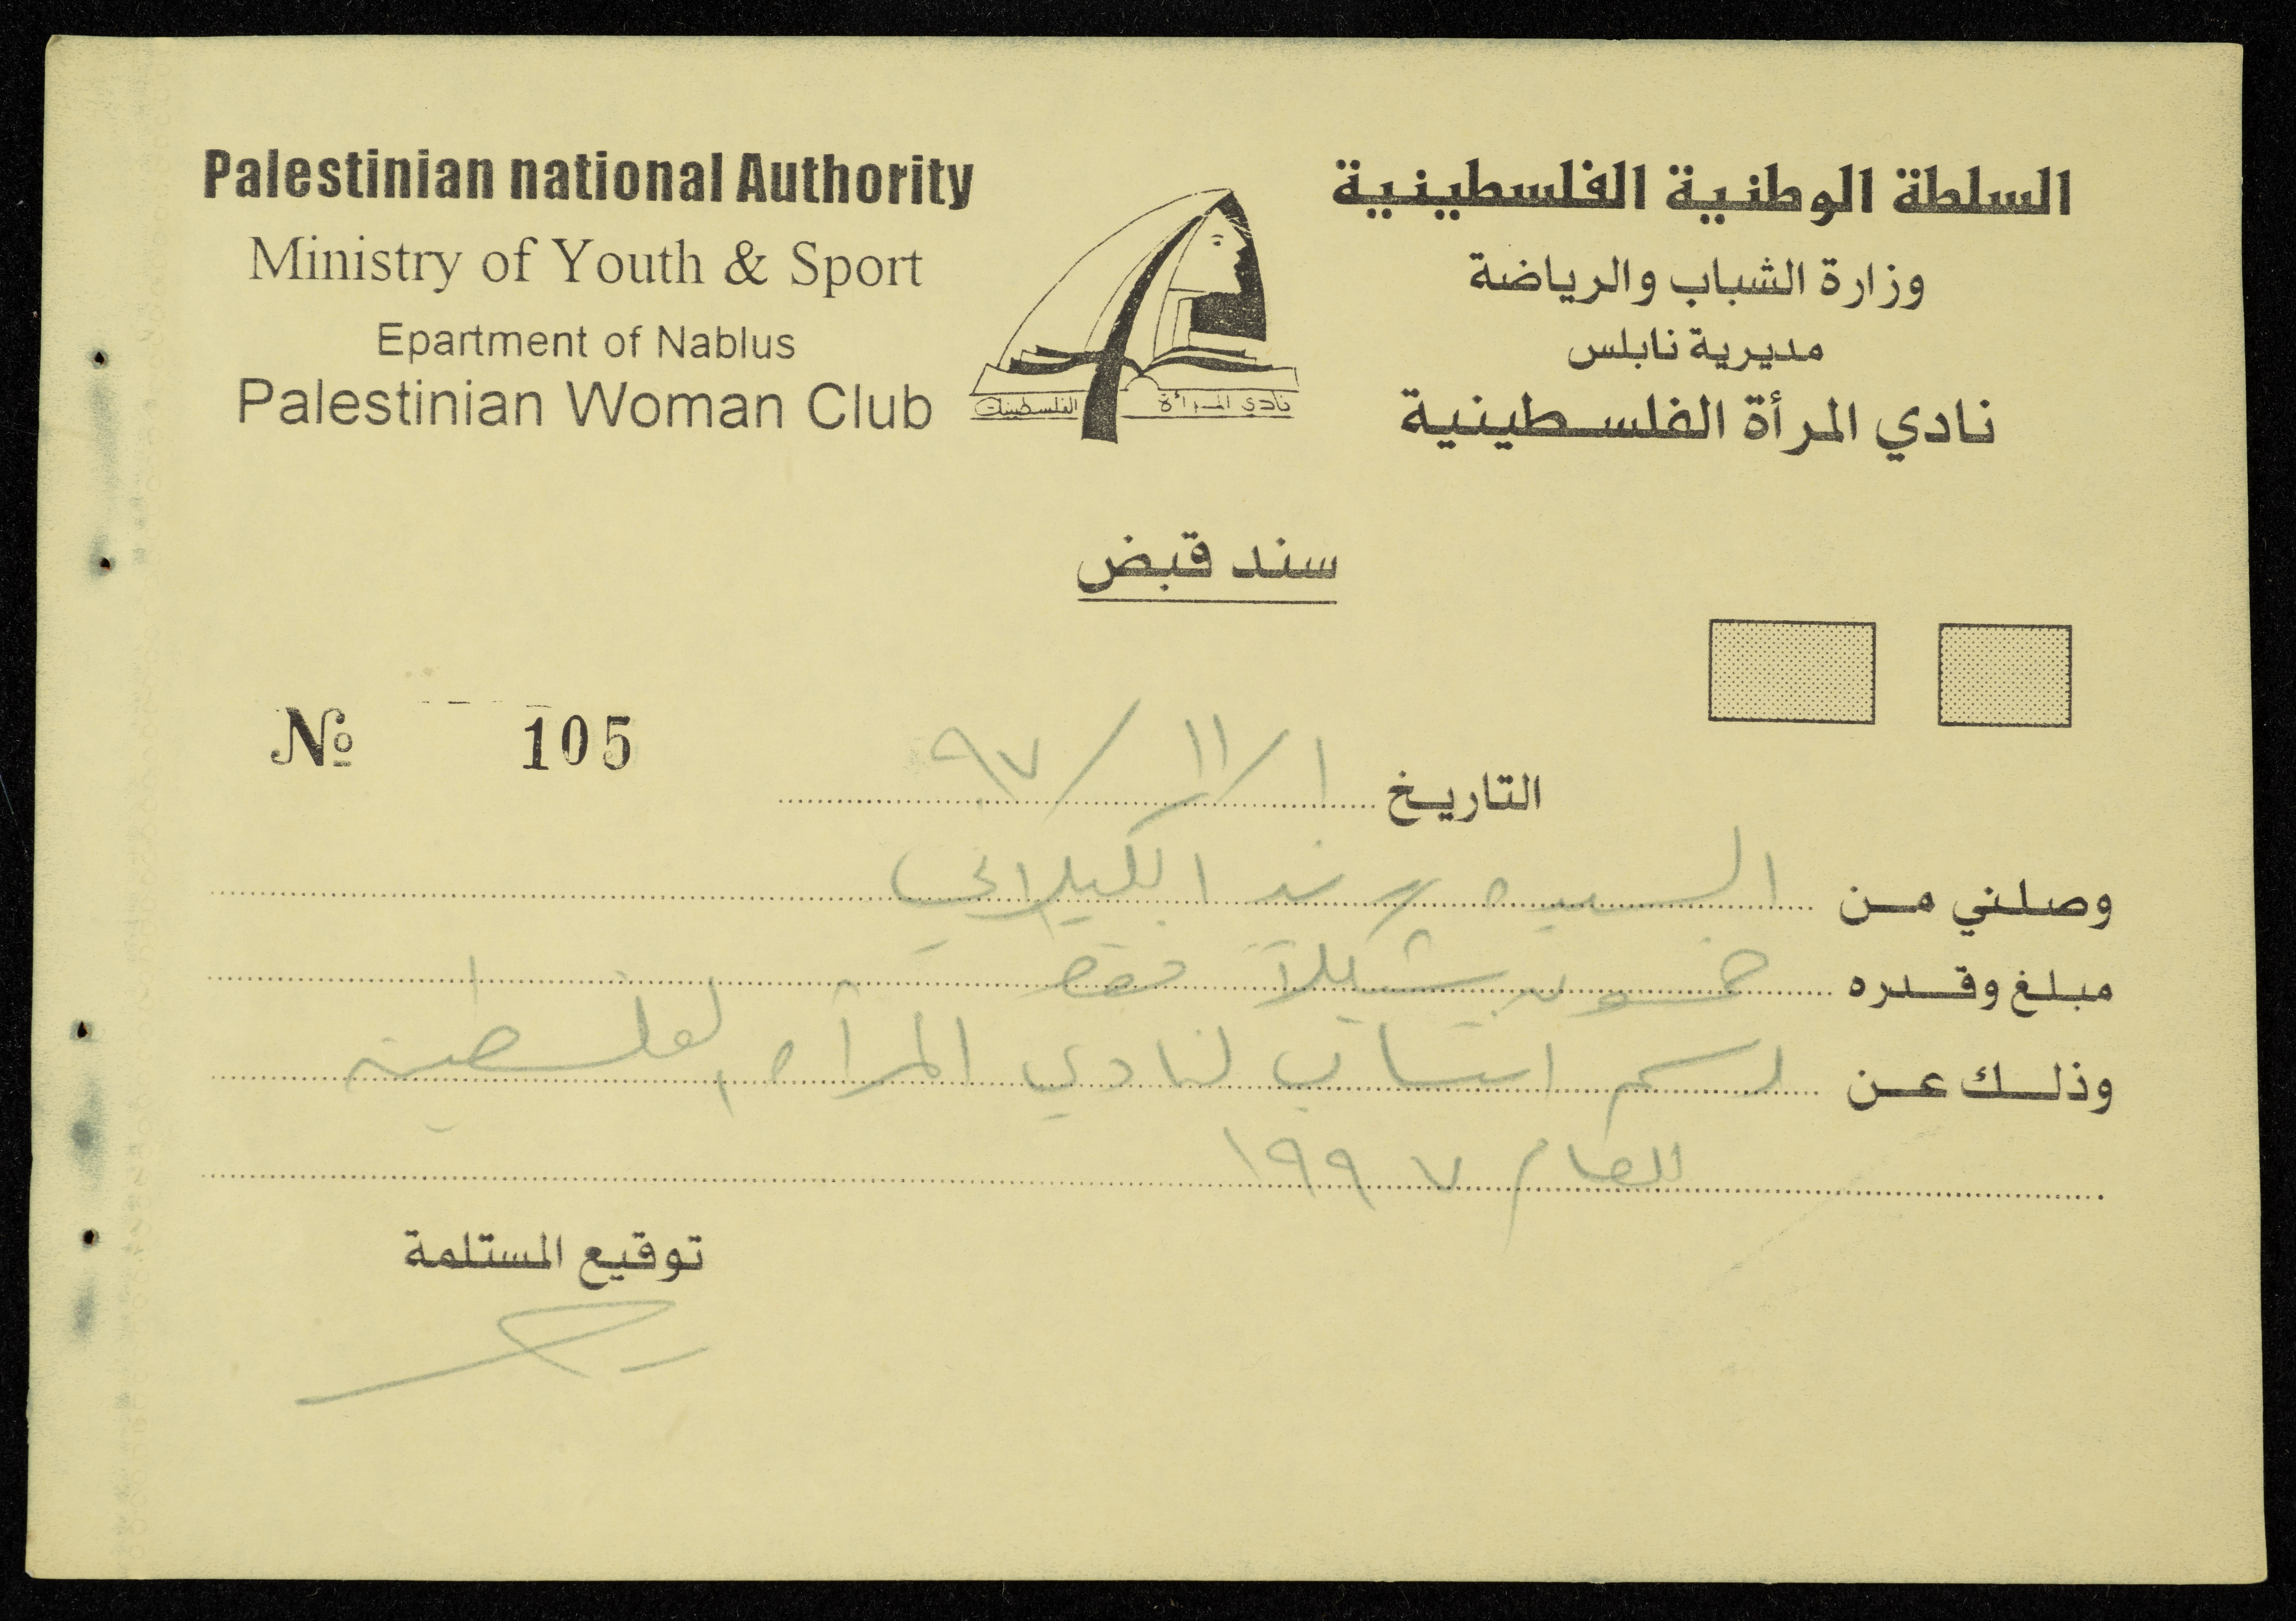 Palestinian national Authority
Ministry of Youth & Sport
Epartment of Nablus
Palestinian Woman Club
السلطة الوطنية الفلسطينية
وزارة الشباب والرياضة
مديرية نابلس
نادي المرأة الفلسطينية
نادي المرأة الفلسطينية
سند قبض
№ 105
التاريخ ١/١١/٩٧
وصلني من السيده الكيلاني
مبلغ وقدره خمسون شيكلاً فقط
وذلك عن رسم انتساب لنادي المرأه الفلسطينية
للعام ١٩٩٧
توقيع المستلمة